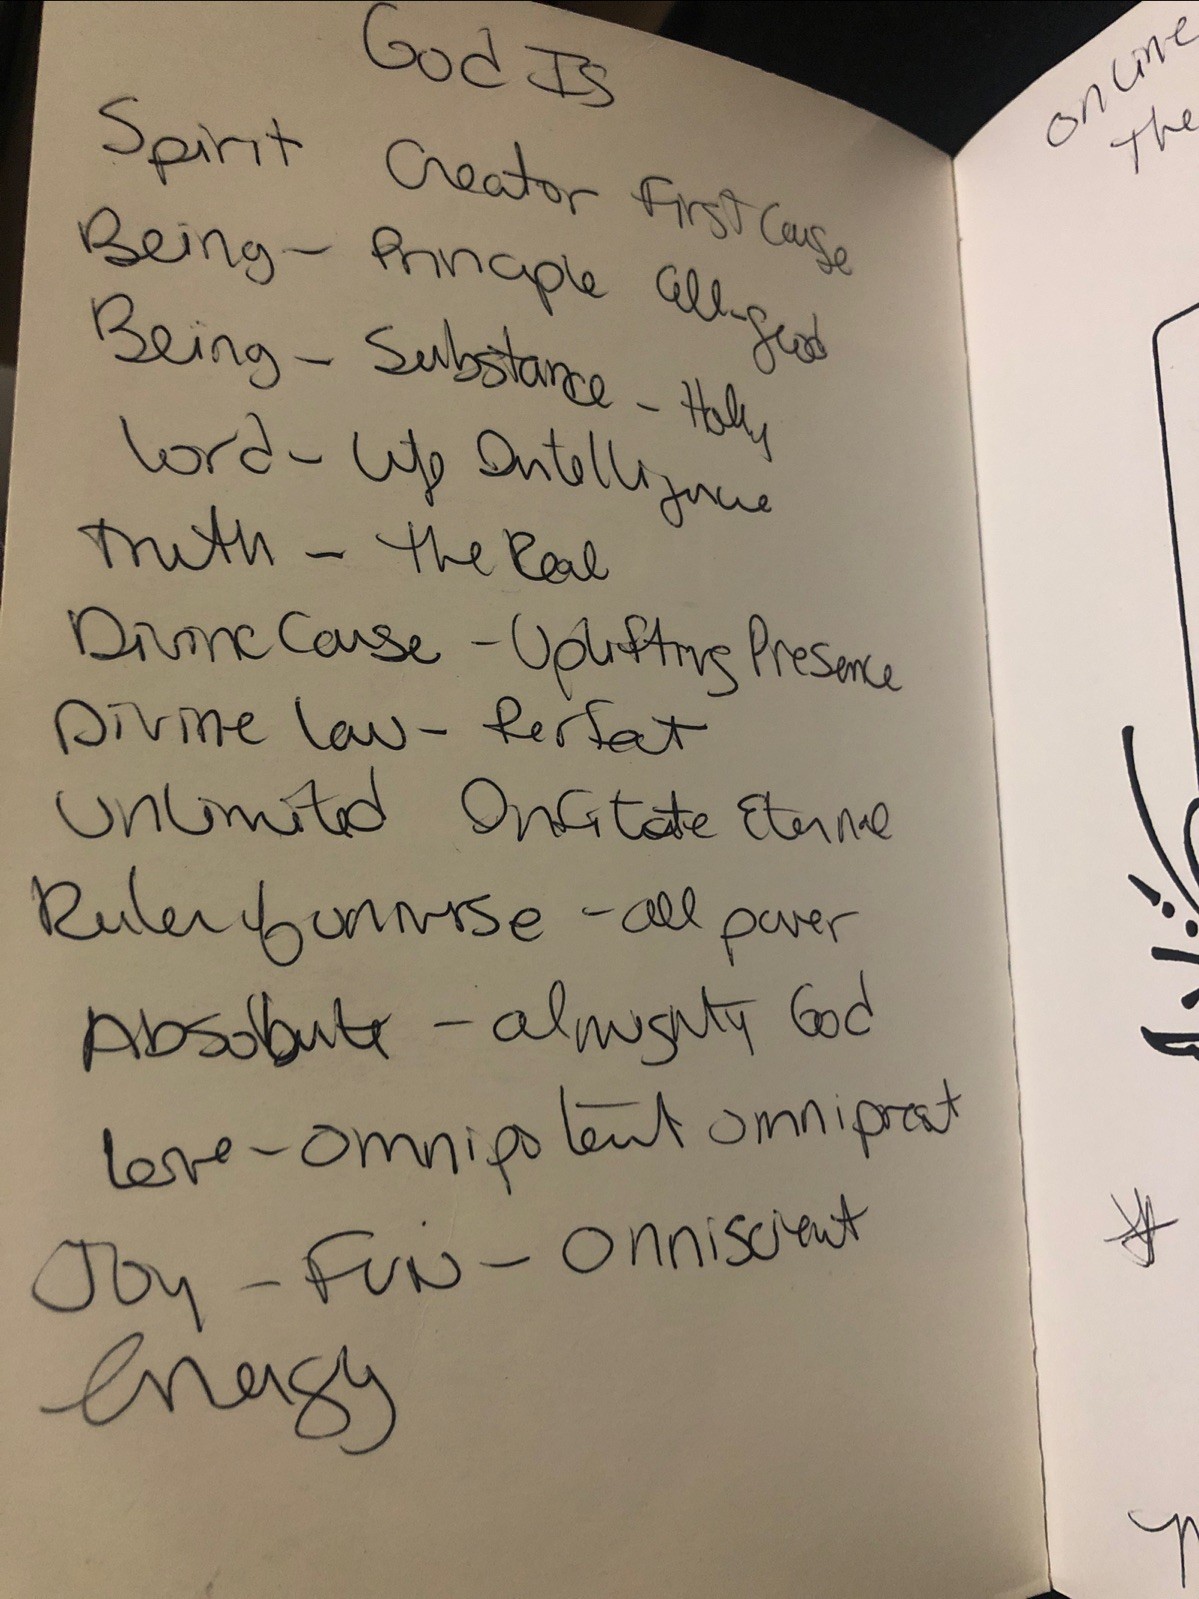 God Is
Spirit Creator First Cause
Being - Principle all-good
Being - Substance - Holy
Lord - Life Intelligence
Truth - the Real
Divine Cause - Uplifting Presence
Divine Law - Perfect
Unlimited Eternal
Ruler of universe - all power
Absolute - almighty God
Love - Omnipotent omnipresent
Joy - Fun - Omniscient
Energy
online
the